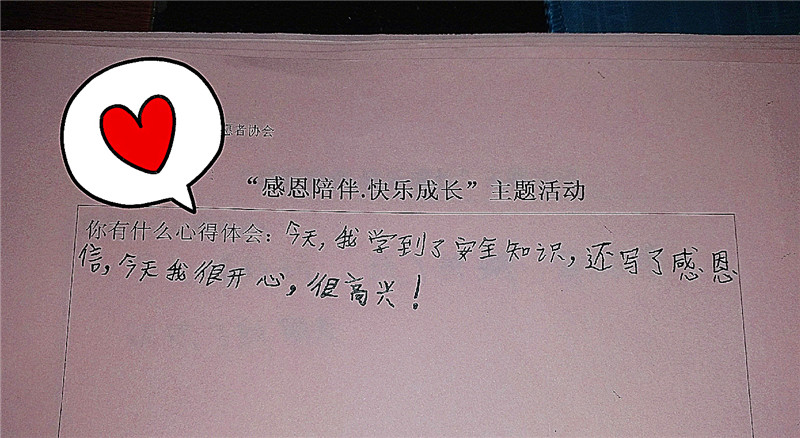 愿者协会
“感恩陪伴.快乐成长”主题活动
你有什么心得体会：今天，我学到了安全知识，还写了感恩
信，今天我很开心，很高兴！